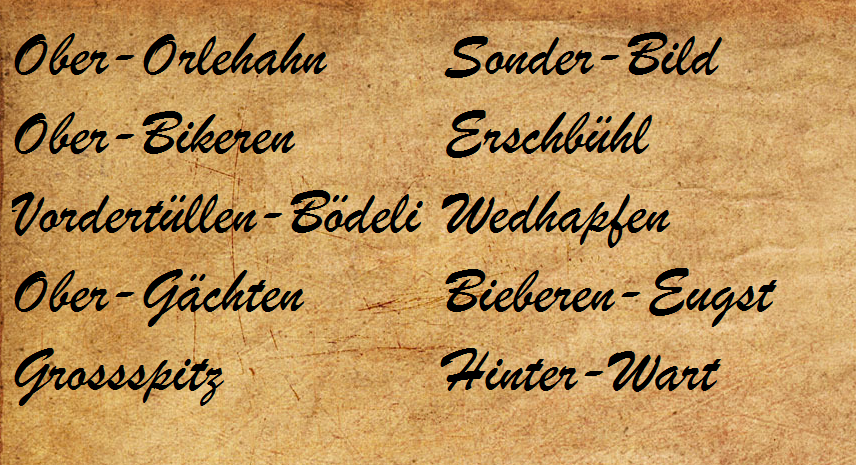 Ober-Orlehahn
Ober-Bikeren
Vordertüllen-Bödeli
Ober-Gächten
Grossspitz
Sonder-Bild
Erschbühl
Wedhapfen
Bieberen-Eugst
Hinter-Wart